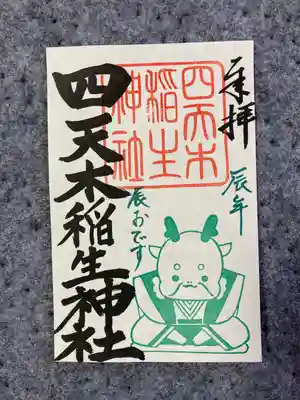 奉拝
辰年
四天木
稲生
神社
辰おです
四天木稲生神社